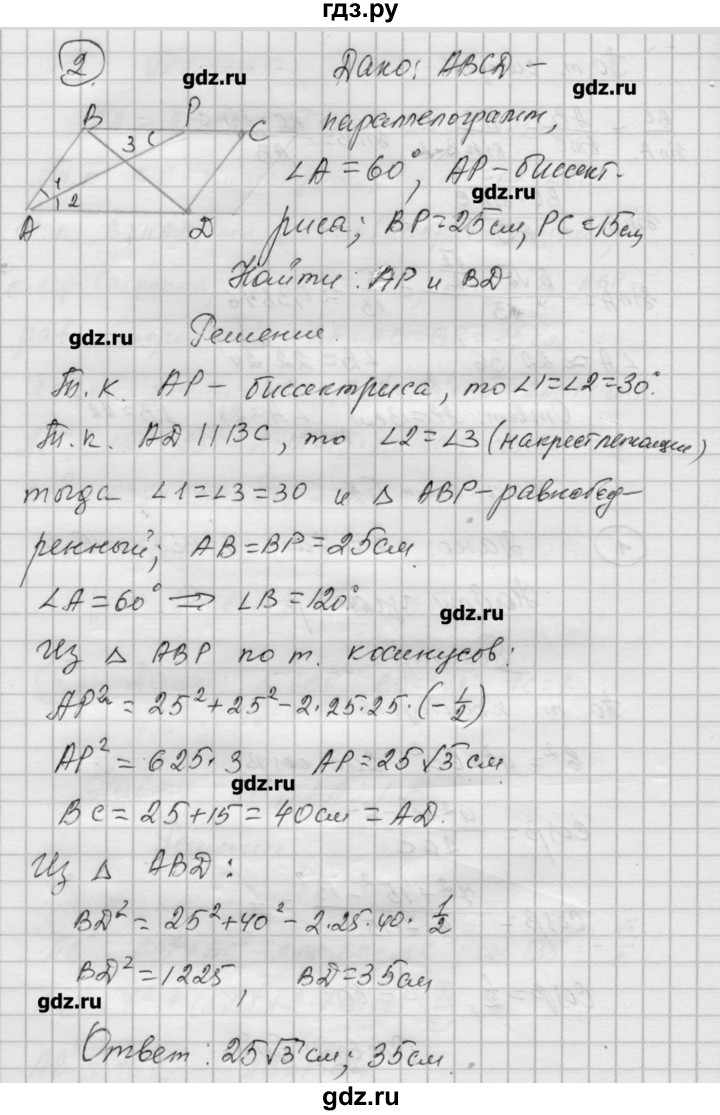 гдз.ру
2
Дано: ABCD –
gdz.ru
gdz.ru
B P C
3
параллелограмм,
1
2
∠A = 60°, AP – биссект-
gdz.ru
A D
риса; BP = 25 см, PC = 15 см
Найти: AP и BD
gdz.ru
Решение.
Т.к. AP – биссектриса, то ∠1 = ∠2 = 30°.
Т.к. AD || BC, то ∠2 = ∠3 (накрест лежащие)
gdz.ru
тогда ∠1 = ∠3 = 30 и △ ABP – равнобед-
ренный; AB = BP = 25 см
∠A = 60° ⇒ ∠B = 120°.
gdz.ru
Из △ ABP по т. косинусов:
AP² = 25² + 25² – 2·25·25·(–1/2)
AP² = 625·3 AP = 25√3 см
gdz.ru
BC = 25 + 15 = 40 см = AD.
Из △ ABD:
BD² = 25² + 40² – 2·25·40·1/2
BD² = 1225, BD = 35 см
gdz.ru
gdz.ru
Ответ: 25√3 см; 35 см.
гдз.ру